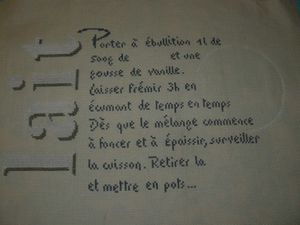 Lait
Porter à ébullition 1l de
500g de et une
gousse de vanille.
Laisser frémir 3h en
écumant de temps en temps
Dès que le mélange commence
à foncer et à épaissir, surveiller
la cuisson. Retirer la
et mettre en pots...